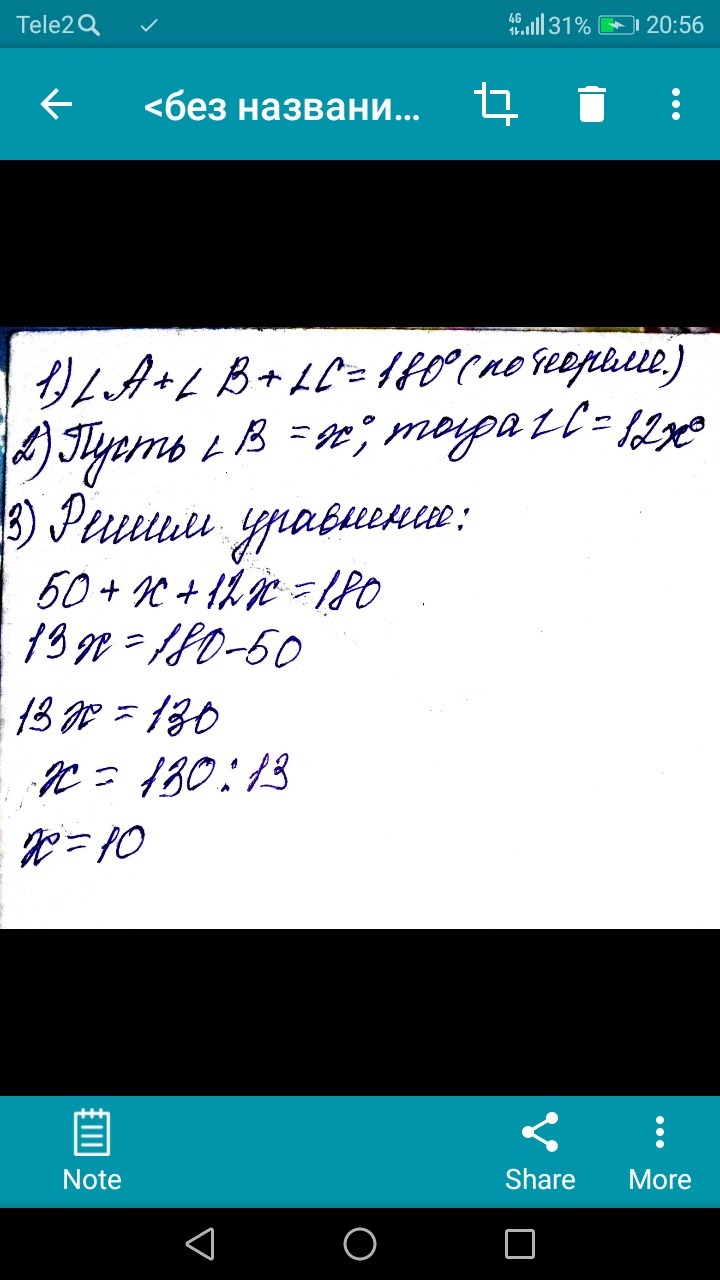 Tele2 4G 31% 20:56
<без названи...
1) ∠A+∠B+∠C=180° (по теореме.)
2) Пусть ∠B=x°, тогда ∠C=12x°
3) Решим уравнение:
50+x+12x=180
13x=180-50
13x=130
x=130:13
x=10
Note Share More